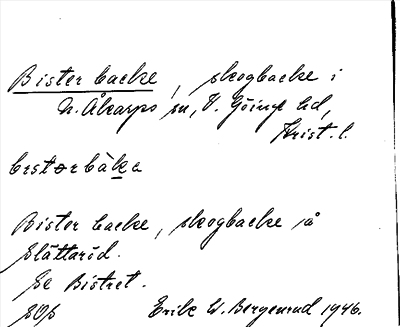 Bister backe, skogbacke i
N. Åkarps sn, V. Göinge hd,
Krist. l.
bɛstərbàka
Bister backe, skogbacke på
Slättaröd.
Se Bistret.
Erik W. Bergenrud 1946.